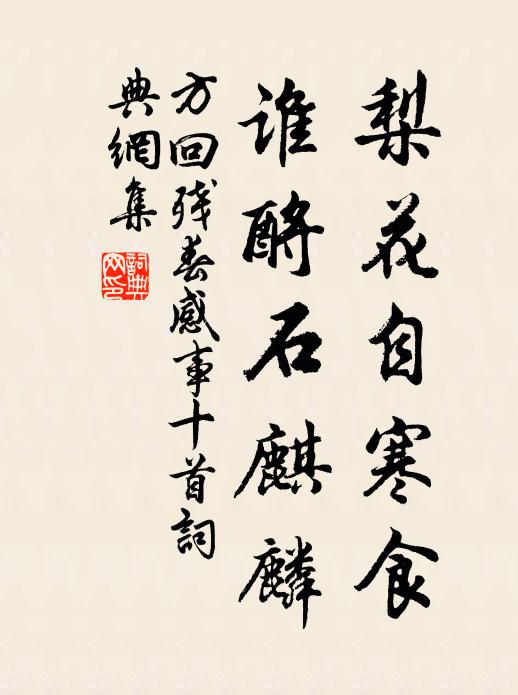 梨花自寒食
谁酹石麒麟
方回残春感事十首詞
典網集
詞典网印